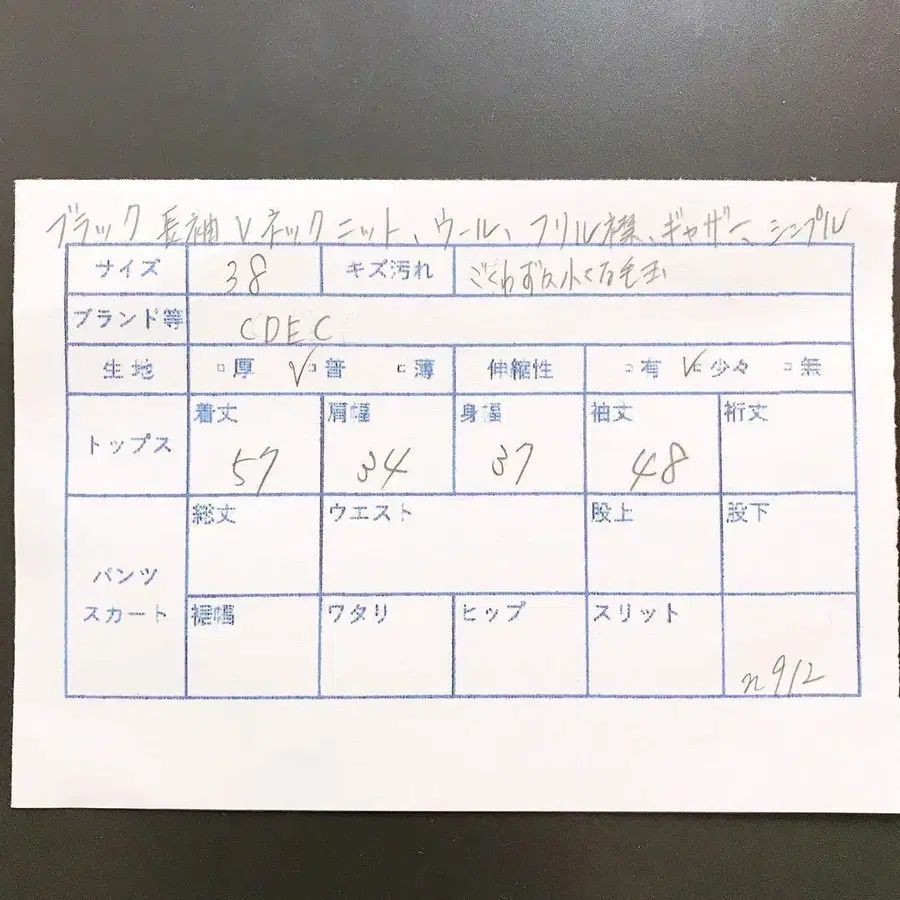 ブラック 長袖 Vネックニット、ウール、フリル襟、ギャザー、シンプル
サイズ 38 キズ汚れ ごくわずか 毛玉
ブランド等 CDEC
生地 □厚 ✓□普 □薄 伸縮性 □有 ✓□少々 □無
トップス 着丈 57 肩幅 34 身幅 37 袖丈 48 裄丈
パンツ スカート 総丈 ウエスト 股上 股下
裾幅 ワタリ ヒップ スリット
n912